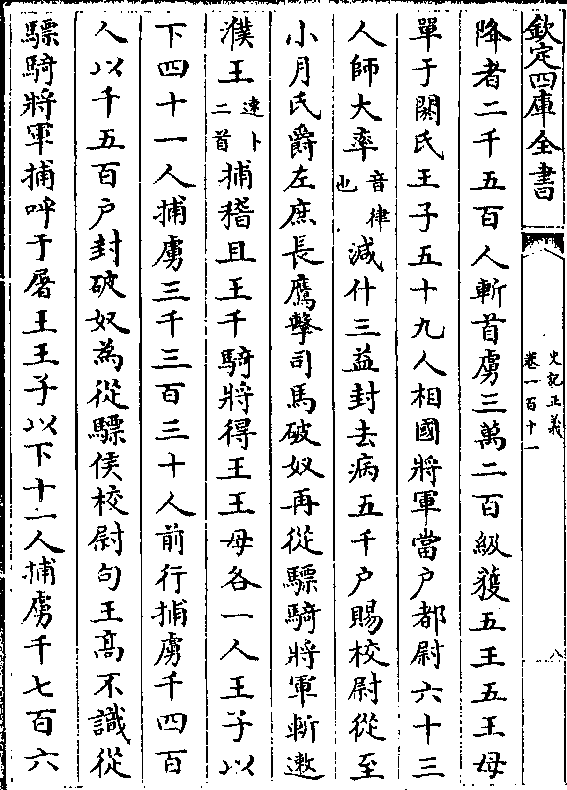 欽定四庫全書
史記正義
卷一百十一
八
降者二千五百人斬首虜三萬二百級獲五王五王母
單于閼氏王子五十九人相國將軍當户都尉六十三
人師大率音律也減什三益封去病五千户賜校尉從至
小月氏爵左庶長鷹擊司馬破奴再從驃騎將軍斬遬
濮王速卜二首捕稽且王千騎將得王王母各一人王子以
下四十一人捕虜三千三百三十人前行捕虜千四百
人以千五百户封破奴為從驃侯校尉句王高不識從
驃騎將軍捕呼于屠王王子以下十一人捕虜千七百六